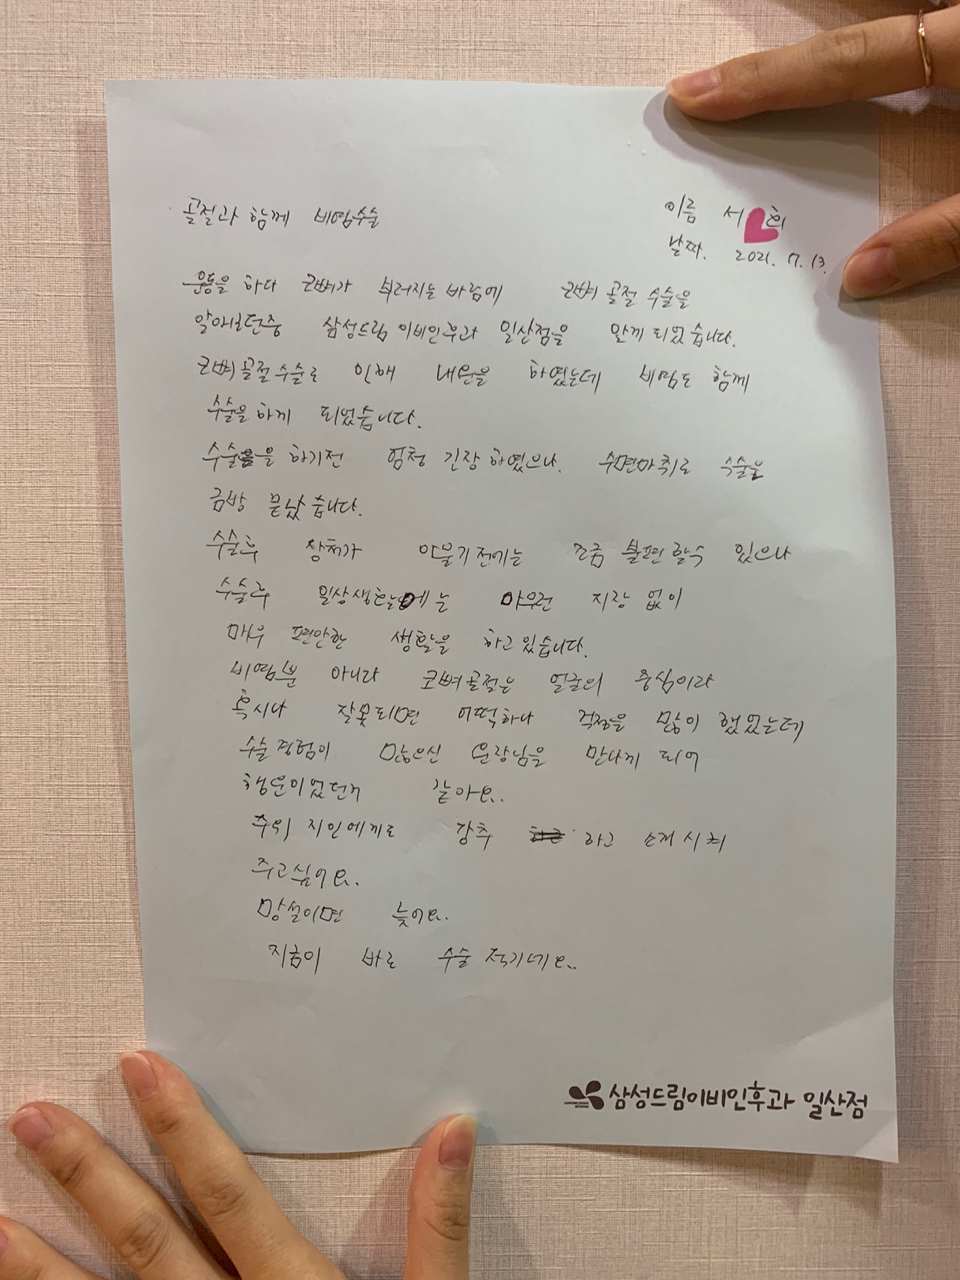 골절과 함께 비염수술
이름 서 희
날짜. 2021. 7. 13.
운동을 하다 코뼈가 부러지는 바람에 코뼈 골절 수술을
알아보던중 삼성드림이비인후과 일산점을 알게 되었습니다.
코뼈골절수술로 인해 내원을 하였는데 비염도 함께
수술을 하게 되었습니다.
수술을 하기전 엄청 긴장하였으나. 수면마취로 수술을
금방 끝났습니다.
수술후 상처가 아물기전에는 조금 불편할수 있으나
수술후 일상생활에는 아무런 지장 없이
매우 편안한 생활을 하고있습니다.
비염뿐 아니라 코뼈골절은 얼굴의 중심이라
혹시나 잘못되면 어떡하나 걱정을 많이 했었는데
수술경험이 많으신 원장님을 만나게 되어
행운이었던거 같아요..
주위 지인에게도 강추 라고 소개시켜
주고싶어요.
망설이면 늦어요.
지금이 바로 수술 적기네요..
삼성드림이비인후과 일산점